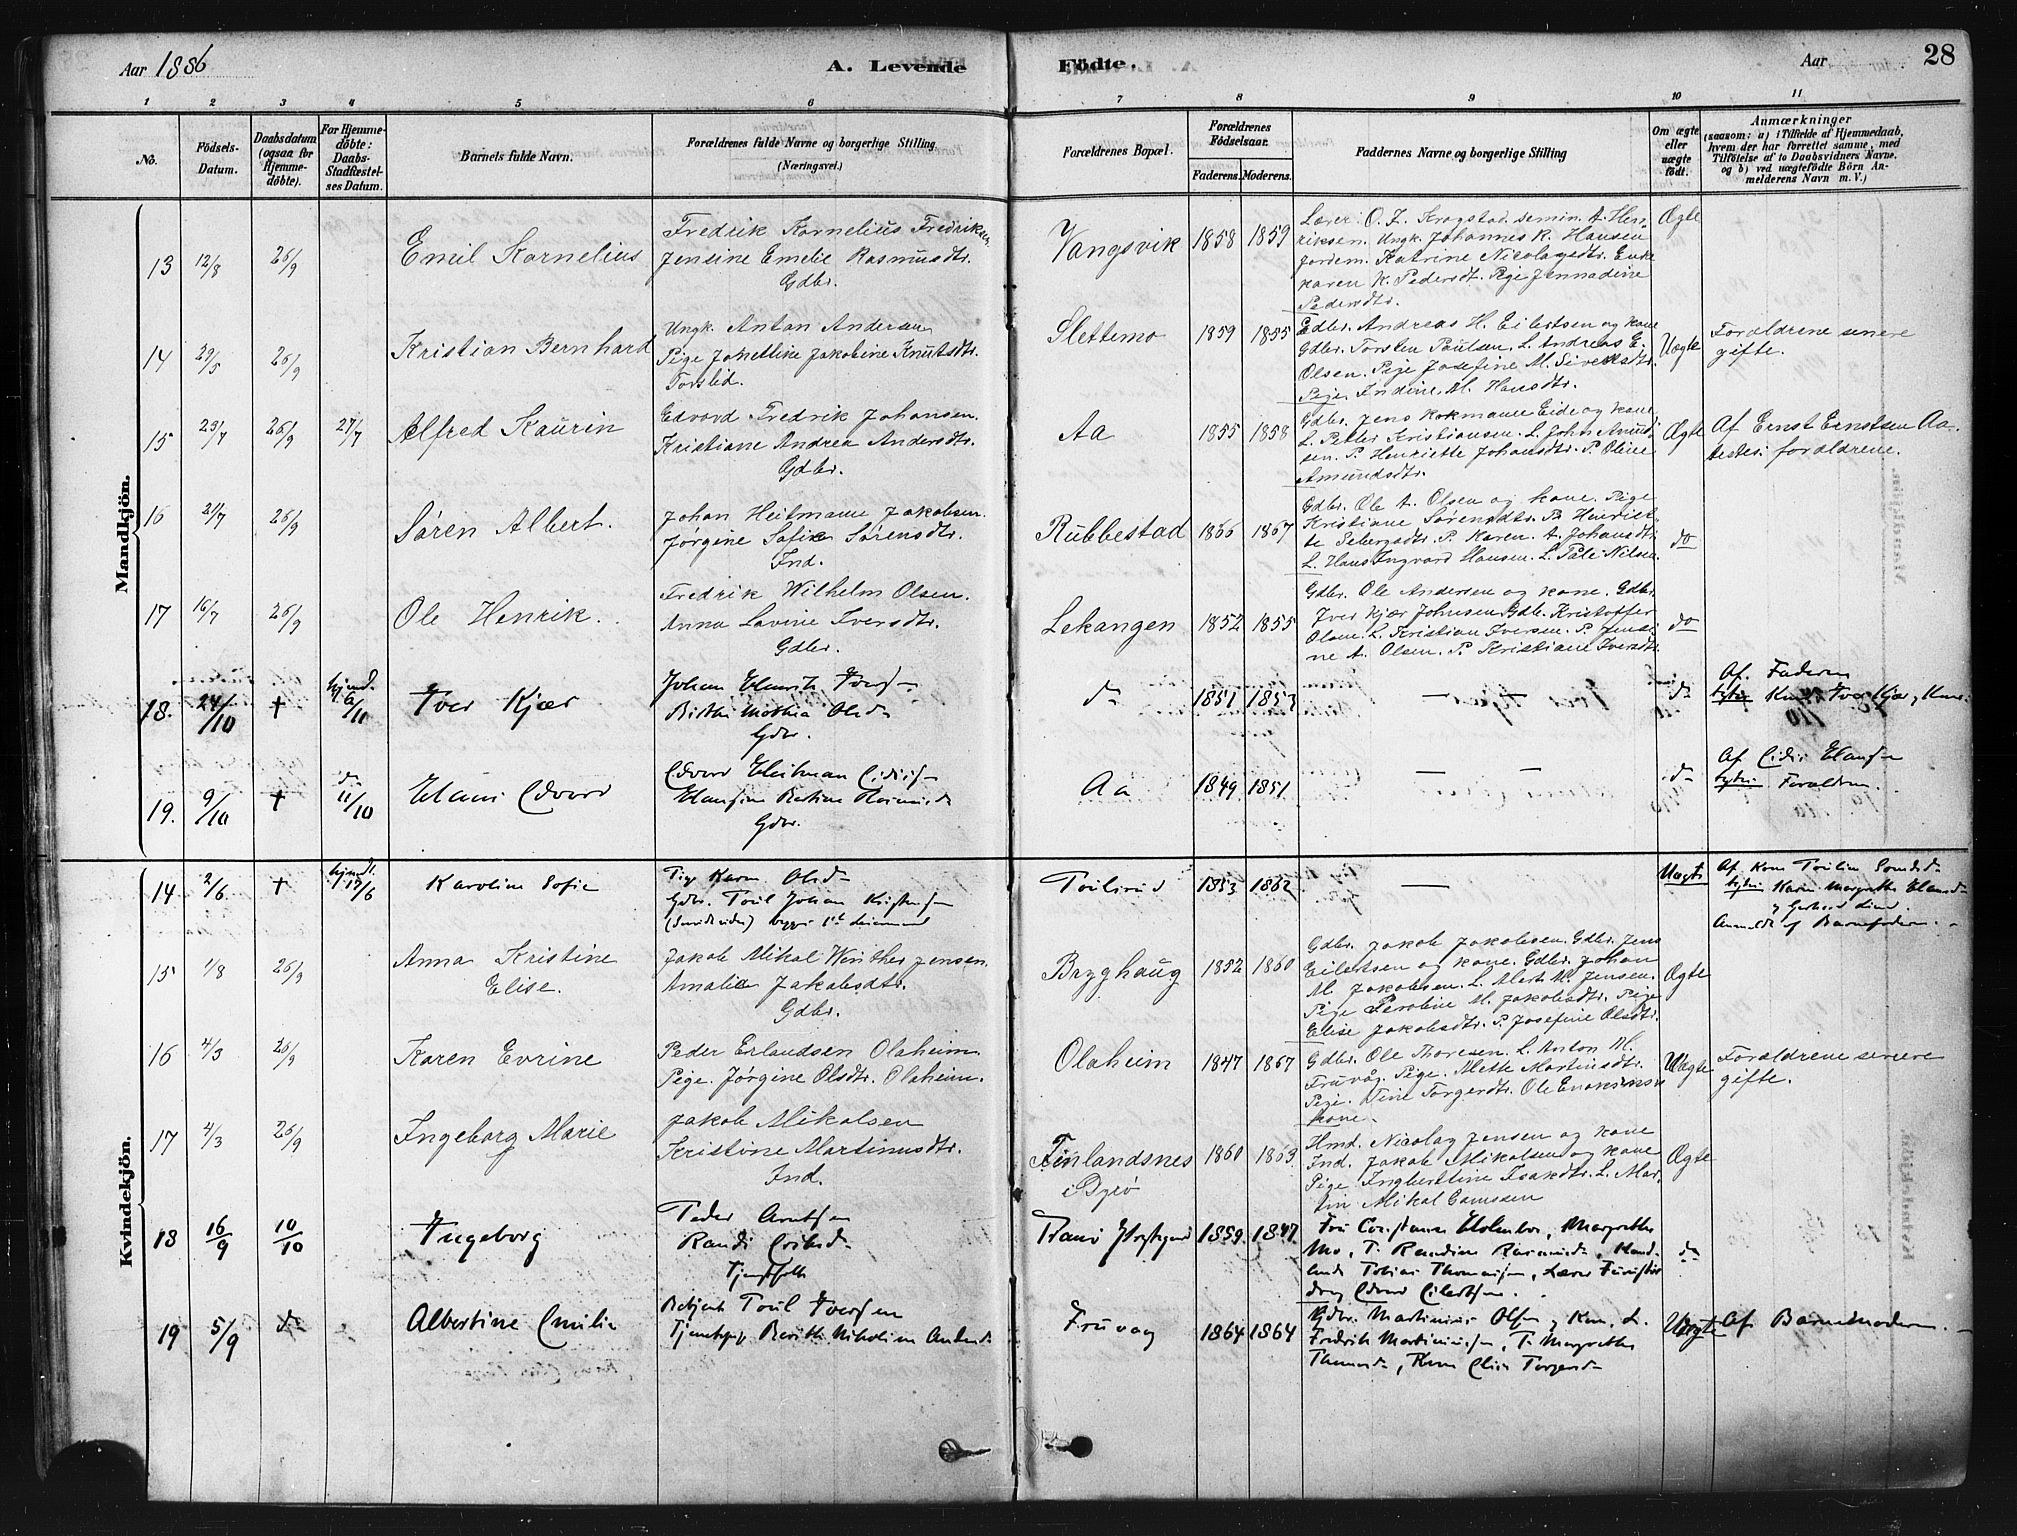 Aar 1886
A. Levende
Födte.
Aar
28
1 2 3 4 5 6 7 8 9 10 11
No.
Födsels-
Datum.
Daabsdatum
(ogsaa for
Hjemme-
döbte).
For Hjemme-
döbte:
Daabs-
Stadfæstel-
ses Datum.
Barnets fulde Navn.
Forældrenes fulde Navne og borgerlige Stilling
(Næringsvei.)
Forældrenes Bopæl.
Forældrenes
Födselsaar.
Faderens. Moderens.
Faddernes Navne og borgerlige Stilling
Om ægte
eller
uægte
födt.
Anmærkninger
(saasom: a) i Tilfælde af Hjemmedaab,
hvem der har forrettet samme, med
Tilföielse af to Daabsvidners Navne.
og b) ved uægtefödte Börn An-
melderens Navn m. V.)
Mandkjön.
13 12/8 26/9
Emil Kornelius
Fredrik Kornelius Fredriksen
Jensine Emelie Rasmusdtr.
Gdbr.
Vangsvik 1858 1859
Lærer O. J. Krogstad. semin. A. Hen-
riksen. Ungk. Johannes R. Hansen
Jordem. Katrine Nicolaysdtr. Enke
Karen K. Pedersdt. Pige Jennadine
Pedersdtr.
Ægte
14 29/5 26/9
Kristian Bernhard
Ungk. Anton Andersen
Pige Jakobine Knutsdtr.
Torslid.
Slettemo 1859 1855
Gdbr. Andreas H. Eilertsen og kone
Gdbr. Torsten Paulsen. L. Andreas E.
Olsen. Pige Josefine M. Sivertsdtr.
Pige Indine M. Hansdtr.
Uægte
Forældrene senere
gifte.
15 23/7 26/9 27/7
Alfred Kaurin
Edvard Fredrik Johansen.
Kristiane Andrea Andersdtr.
Gdbr.
Aa 1855 1858
Gdbr. Jens Kokmann Eide og kone.
L. Peder Kristiansen. L. John Amund-
sen. P. Henriette Johansdtr. P. Oline
Amundsdtr.
Ægte
Af Ernst Ernstsen Aa.
testes: forældrene.
16 21/7 26/9
Søren Albert.
Johan Heitmann Jakobsen.
Jørgine Sofie Sørensdtr.
Ind.
Rubbestad 1866 1867
Gdbr. Ole A. Olsen og kone. Pige
Kristiane Sørensdtr. P. Henriet-
te Sebergsdtr. P. Karen A. Johansdtr.
L. Hans Ingvard Hansen. L. Pale Nilsen.
do
17 16/7 26/9
Ole Henrik.
Fredrik Wilhelm Olsen.
Anna Lovine Iversdtr.
Gdbr.
Lekangen 1852 1855
Gdbr. Ole Andersen og kone. Gdbr.
Iver Kjær Johnsen. Gdb. Kristoffer
Olsen. L. Kristian Iversen. P. Jensi-
ne A. Olsen. P. Kristiane Iversdtr.
do
18. 24/10 † hjmd. 6/11
Iver Kjær
Johan Henrik
Birthe Mathea Olsd
Gdbr.
do 1851 1853
— —
do
Af Faderen
Iver Kjær
19. 9/10 † do 11/10
Hans Edvard
Edvard Heitman
Hansine
Gdbr.
Aa 1849 1851
— —
do
Af Hans
Forældrene.
Kvindekjön.
14 2/6 † hjmd. 17/6
Karoline Sofie
Pige Karen Olsd
Gdbr. Johan
1853 1862
—
Uægte
Af
Karen Margrethe Hansd
Anmeldt af Barnefaderen.
15 1/8 26/9
Anna Kristine
Elise.
Jakob Mikal Winther Jensen.
Amalie Jakobsdtr.
Gdbr.
Brygghaug 1852 1860
Gdbr. Jakob Jakobsen. Gdbr. Jens
Eilertsen og kone. Gdbr. Johan
M. Jakobsen. L. M. Jensen.
Pige M. Jakobsdtr. Pige
Elise Jakobsdtr. P. Josefine Olsdtr.
Ægte
16 4/3 26/9
Karen Evrine
Peder Erlandsen Olaheim.
Pige. Jørgine Olsdtr. Olaheim.
Olaheim 1847 1867
Gdbr. Ole Thoresen. L. Anton M.
Fruvåg. Pige. Mette Martinsdtr.
Pige. Dine Torgerdtr.
kone.
Uægte
Forældrene senere
gifte.
17 4/3 26/9
Ingeborg Marie
Jakob Mikalsen
Kristine Martinusdtr.
Ind.
Finlandsnes
i Dyrø
1860 1863
Hmd. Nicolay Jensen og kone
Ind. Jakob Mikalsen og kone
Pige Ingbertine Isakdtr. L. Mar-
tin Mikal
Ægte
18 16/9 10/10
Ingeborg
Peder Arntsen
Randi
Tjenstfolk
Tranø Præstegaard 1859 1847
Margrethe
Mo,
Tobias Thomassen, Lærer
Edvard Eilertsen
do
19 5/9 do
Albertine Emilie
Iversen
Berith Nikoline Andersd
Fruvaag 1864 1864
Gdbr. Martinus Olsen og Kone, L.
Fredrik Martinussen, P. Margrethe
Uægte
Af Barnemoderen.